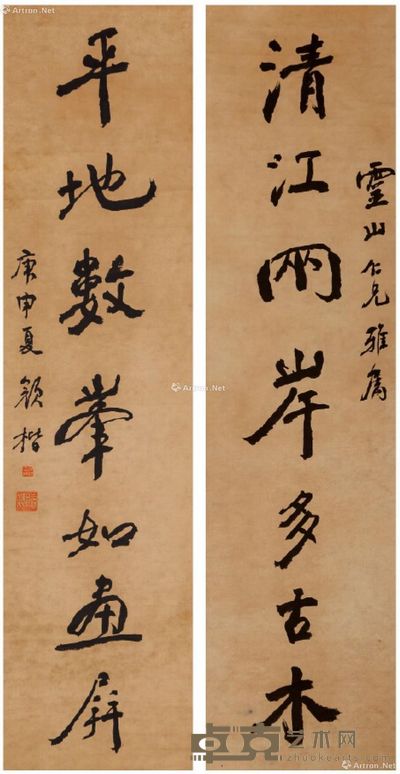 靈山仁兄雅屬
清江兩岸多古木
平地數峯如畫屏
庚申夏
顏楷
Artron.Net
Artron.Net
Artron.Net
Artron.Net
卓克艺术网
zhuokearts.com